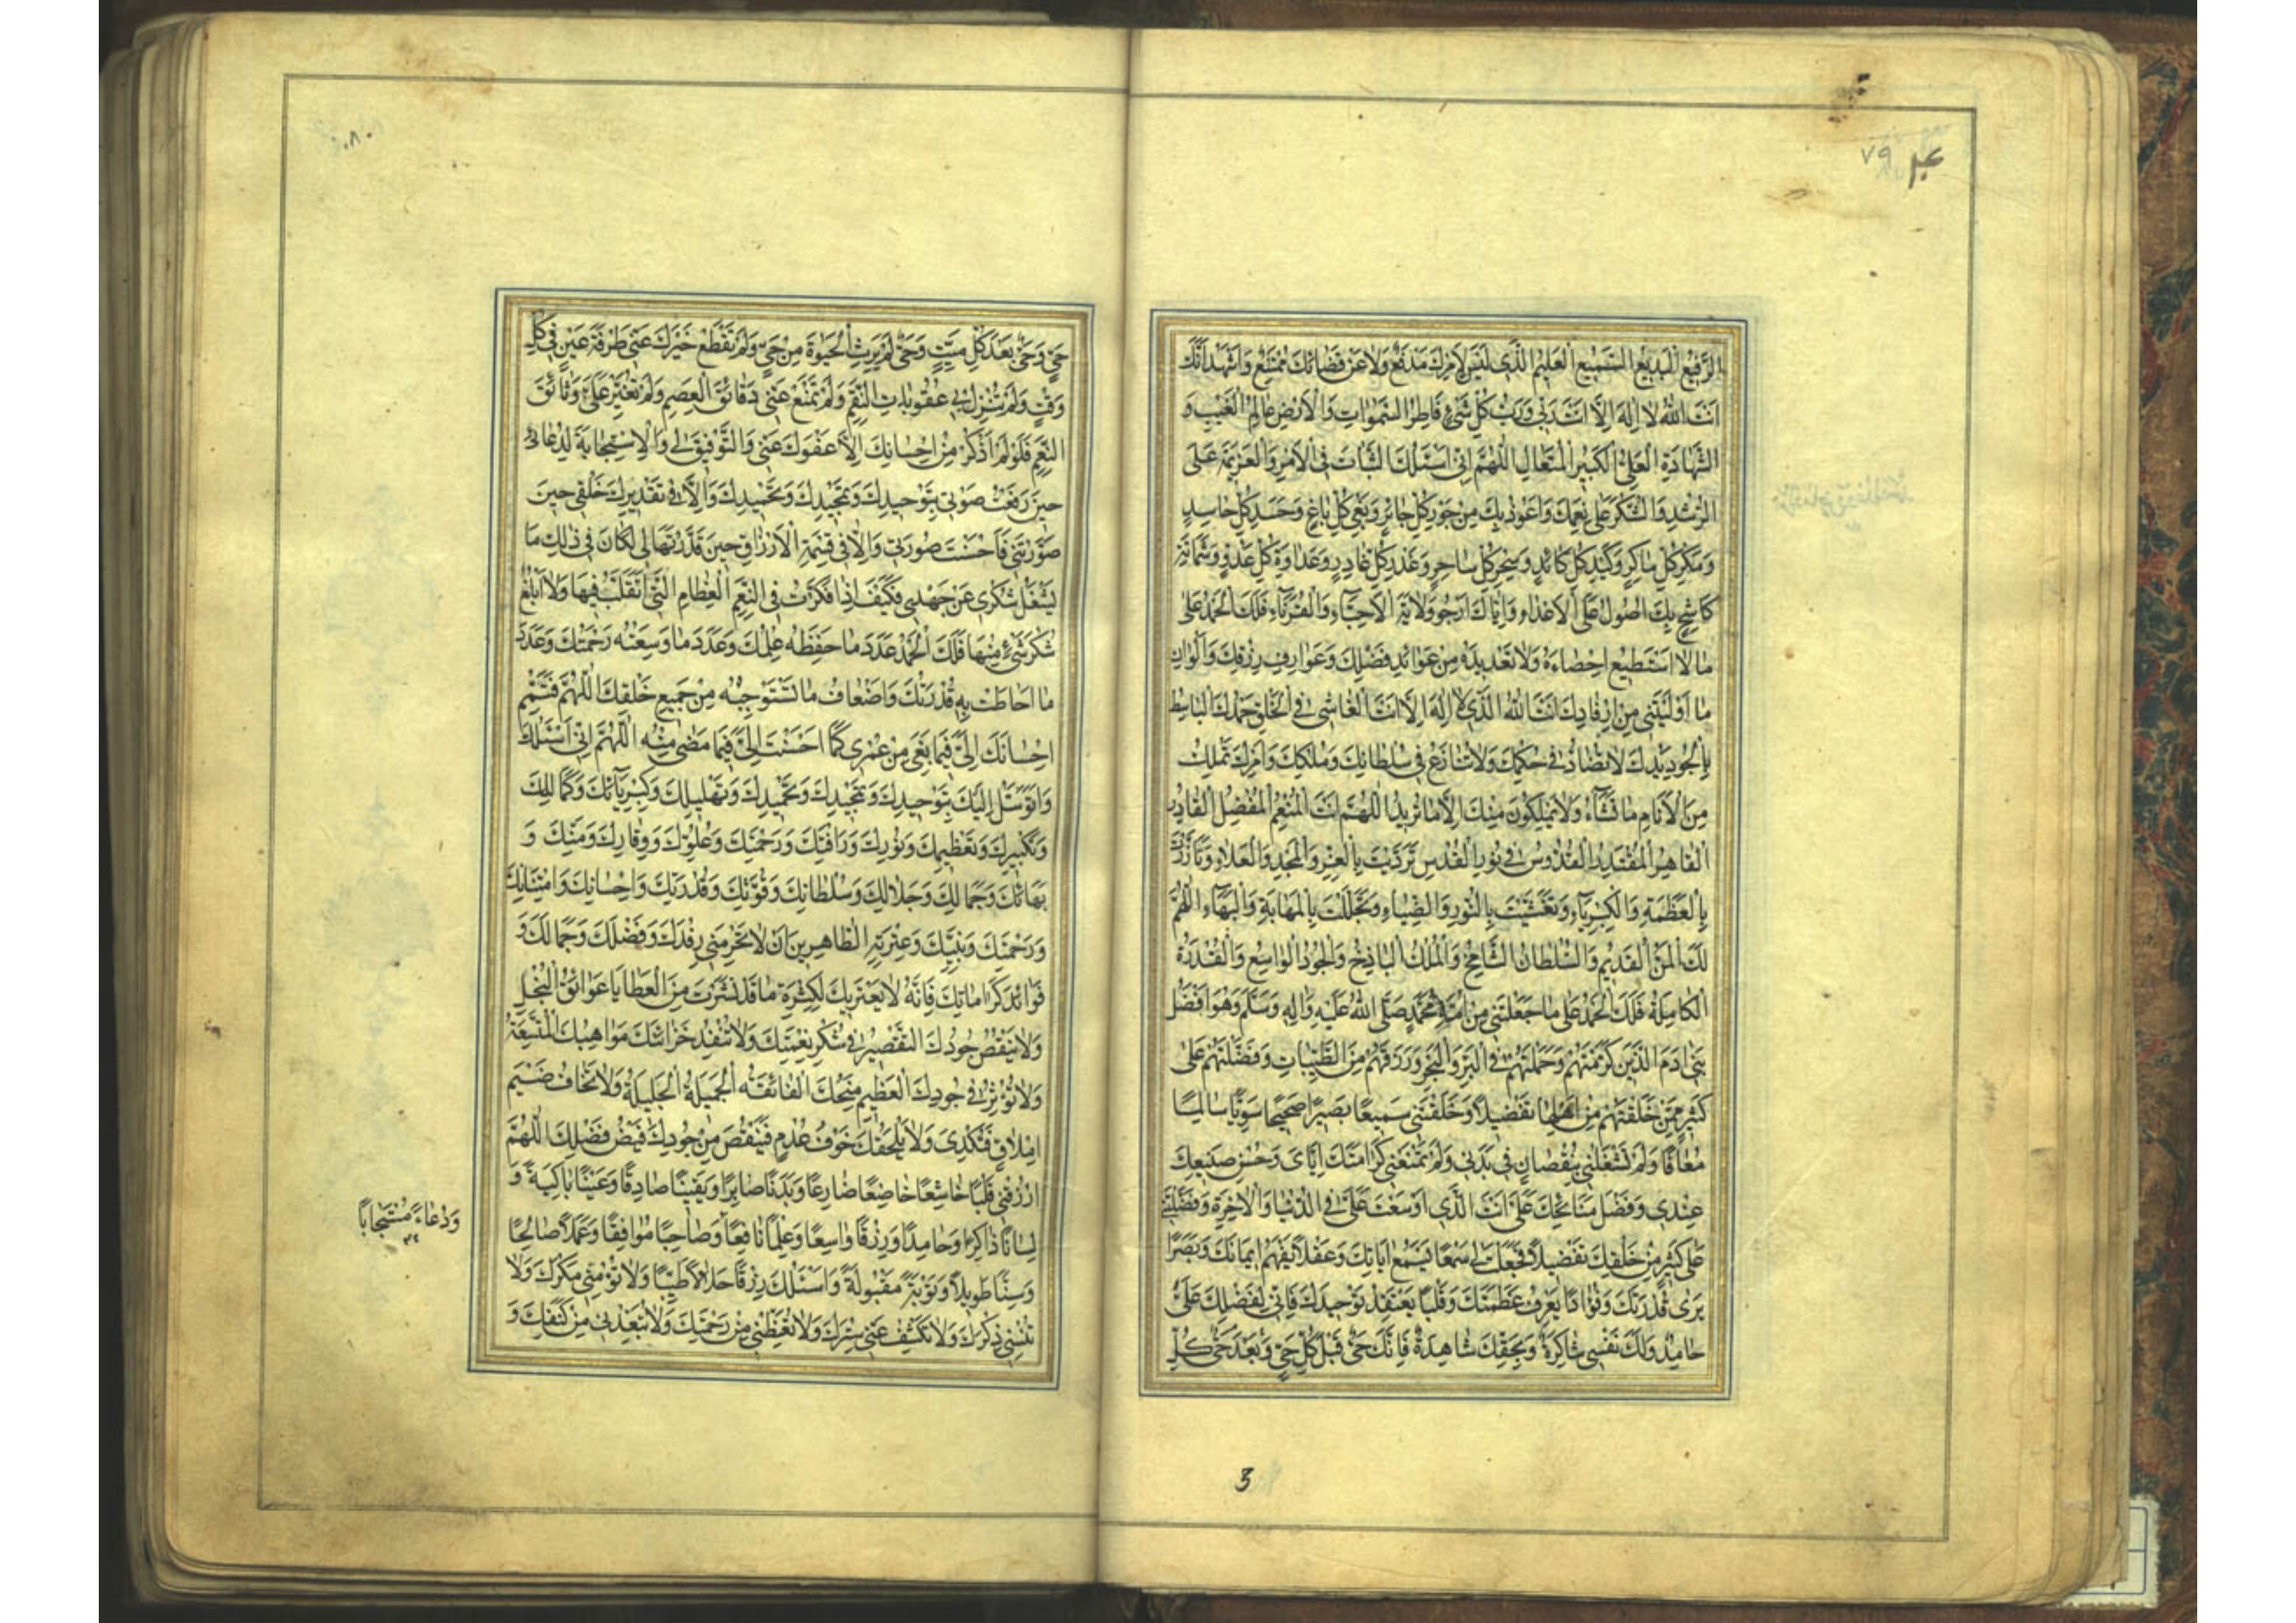 ٧٩
الرَّفِيعُ الْبَدِيعُ السَّمِيعُ الْعَلِيمُ الَّذِي لَيْسَ لِأَمْرِكَ مَدْفَعٌ وَلَا عَنْ قَضَائِكَ مُمْتَنِعٌ وَأَشْهَدُ أَنَّكَ
أَنْتَ اللهُ لَا إِلَهَ إِلَّا أَنْتَ رَبِّي وَرَبُّ كُلِّ شَيْءٍ فَاطِرُ السَّمَوَاتِ وَالْأَرْضِ عَالِمُ الْغَيْبِ وَ
الشَّهَادَةِ الْعَلِيُّ الْكَبِيرُ الْمُتَعَالِ اللَّهُمَّ إِنِّي أَسْئَلُكَ الثَّبَاتَ فِي الْأَمْرِ وَالْعَزِيمَةَ عَلَى
الرُّشْدِ وَالشُّكْرَ عَلَى نِعَمِكَ وَأَعُوذُ بِكَ مِنْ جَوْرِ كُلِّ جَائِرٍ وَبَغْيِ كُلِّ بَاغٍ وَحَسَدِ كُلِّ حَاسِدٍ
وَمَكْرِ كُلِّ مَاكِرٍ وَكَيْدِ كُلِّ كَائِدٍ وَسِحْرِ كُلِّ سَاحِرٍ وَغَدْرِ كُلِّ غَادِرٍ وَعَدَاوَةِ كُلِّ عَدُوٍّ وَشَمَاتَةِ
كَاشِحٍ بِكَ أَصُولُ عَلَى الْأَعْدَاءِ وَإِيَّاكَ أَرْجُو وَلَايَةَ الْأَحِبَّاءِ وَالْقُرَنَاءِ فَلَكَ الْحَمْدُ عَلَى
مَا لَا أَسْتَطِيعُ إِحْصَاءَهُ وَلَا تَعْدِيدَهُ مِنْ عَوَائِدِ فَضْلِكَ وَعَوَارِفِ رِزْقِكَ وَأَلْوَانِ
مَا أَوْلَيْتَنِي مِنْ إِرْفَادِكَ أَنْتَ اللهُ الَّذِي لَا إِلَهَ إِلَّا أَنْتَ الْفَاشِي فِي الْخَلْقِ حَمْدُكَ الْبَاسِطُ
بِالْجُودِ يَدَكَ لَا تُضَادُّ فِي حُكْمِكَ وَلَا تُنَازَعُ فِي سُلْطَانِكَ وَمُلْكِكَ وَأَمْرِكَ تَمْلِكُ
مِنَ الْأَنَامِ مَا تَشَاءُ وَلَا يَمْلِكُونَ مِنْكَ إِلَّا مَا تُرِيدُ اللَّهُمَّ أَنْتَ الْمُنْعِمُ الْمُفْضِلُ الْقَادِرُ
الْقَاهِرُ الْمُقْتَدِرُ الْقُدُّوسُ فِي نُورِ الْقُدْسِ تَرَدَّيْتَ بِالْعِزِّ وَالْمَجْدِ وَالْعَلَاءِ وَتَأَزَّرْتَ
بِالْعَظَمَةِ وَالْكِبْرِيَاءِ وَتَغَشَّيْتَ بِالنُّورِ وَالضِّيَاءِ وَتَجَلَّلْتَ بِالْمَهَابَةِ وَالْبَهَاءِ اللَّهُمَّ
لَكَ الْمَنُّ الْقَدِيمُ وَالسُّلْطَانُ الشَّامِخُ وَالْمُلْكُ الْبَاذِخُ وَالْجُودُ الْوَاسِعُ وَالْقُدْرَةُ
الْكَامِلَةُ فَلَكَ الْحَمْدُ عَلَى مَا جَعَلْتَنِي مِنْ أُمَّةِ مُحَمَّدٍ صَلَّى اللهُ عَلَيْهِ وَآلِهِ وَسَلَّمَ وَهُوَ أَفْضَلُ
بَنِي آدَمَ الَّذِينَ كَرَّمْتَهُمْ وَحَمَلْتَهُمْ فِي الْبَرِّ وَالْبَحْرِ وَرَزَقْتَهُمْ مِنَ الطَّيِّبَاتِ وَفَضَّلْتَهُمْ عَلَى
كَثِيرٍ مِمَّنْ خَلَقْتَهُمْ مِنْ أَهْلِهَا تَفْضِيلًا وَخَلَقْتَنِي سَمِيعًا بَصِيرًا صَحِيحًا سَوِيًّا سَالِمًا
مُعَافًا وَلَمْ تَشْغَلْنِي بِنُقْصَانٍ فِي بَدَنِي وَلَمْ تَمْنَعْنِي كَرَامَتَكَ إِيَّايَ وَحُسْنَ صَنِيعِكَ
عِنْدِي وَفَضْلَ مَنَائِحِكَ عَلَيَّ أَنْتَ الَّذِي أَوْسَعْتَ عَلَيَّ فِي الدُّنْيَا وَالْآخِرَةِ وَفَضَّلْتَنِي
عَلَى كَثِيرٍ مِنْ خَلْقِكَ تَفْضِيلًا فَجَعَلْتَ لِي سَمْعًا يَسْمَعُ آيَاتِكَ وَعَقْلًا يَفْهَمُ إِيمَانَكَ وَبَصَرًا
يَرَى قُدْرَتَكَ وَفُؤَادًا يَعْرِفُ عَظَمَتَكَ وَقَلْبًا يَعْتَقِدُ تَوْحِيدَكَ فَإِنِّي لِفَضْلِكَ عَلَيَّ
حَامِدٌ وَلَكَ نَفْسِي شَاكِرَةٌ وَبِحَقِّكَ شَاهِدَةٌ فَإِنَّكَ حَيٌّ قَبْلَ كُلِّ حَيٍّ وَبَعْدَ حَيِّ كُلِّ
3
٨٠
حَيٍّ وَحَيٌّ بَعْدَ كُلِّ مَيِّتٍ وَحَيٌّ لَمْ يَرِثِ الْحَيَوةَ مِنْ حَيٍّ وَلَمْ تَقْطَعْ خَيْرَكَ عَنِّي طَرْفَةَ عَيْنٍ فِي كُلِّ
وَقْتٍ وَلَمْ تُنْزِلْ بِي عُقُوبَاتِ النِّقَمِ وَلَمْ تَمْنَعْ عَنِّي دَقَائِقَ الْعِصَمِ وَلَمْ تُغَيِّرْ عَلَيَّ وَثَائِقَ
النِّعَمِ فَلَوْ لَمْ أَذْكُرْ مِنْ إِحْسَانِكَ إِلَّا عَفْوَكَ عَنِّي وَالتَّوْفِيقَ لِي وَالْإِسْتِجَابَةَ لِدُعَائِي
حِينَ رَفَعْتُ صَوْتِي بِتَوْحِيدِكَ وَتَمْجِيدِكَ وَتَحْمِيدِكَ وَإِلَّا فِي تَقْدِيرِكَ خَلْقِي حِينَ
صَوَّرْتَنِي فَأَحْسَنْتَ صُورَتِي وَإِلَّا فِي قِسْمَةِ الْأَرْزَاقِ حِينَ قَدَّرْتَهَا لِي لَكَانَ فِي ذَلِكَ مَا
يَشْغَلُ شُكْرِي عَنْ جَهْدِي فَكَيْفَ إِذَا فَكَّرْتُ فِي النِّعَمِ الْعِظَامِ الَّتِي أَتَقَلَّبُ فِيهَا وَلَا أَبْلُغُ
شُكْرَ شَيْءٍ مِنْهَا فَلَكَ الْحَمْدُ عَدَدَ مَا حَفِظَهُ عِلْمُكَ وَعَدَدَ مَا وَسِعَتْهُ رَحْمَتُكَ وَعَدَدَ
مَا أَحَاطَتْ بِهِ قُدْرَتُكَ وَأَضْعَافَ مَا تَسْتَوْجِبُهُ مِنْ جَمِيعِ خَلْقِكَ اللَّهُمَّ فَتَمِّمْ
إِحْسَانَكَ إِلَيَّ فِيمَا بَقِيَ مِنْ عُمْرِي كَمَا أَحْسَنْتَ إِلَيَّ فِيمَا مَضَى مِنْهُ اللَّهُمَّ إِنِّي أَسْئَلُكَ
وَأَتَوَسَّلُ إِلَيْكَ بِتَوْحِيدِكَ وَتَمْجِيدِكَ وَتَحْمِيدِكَ وَتَهْلِيلِكَ وَكِبْرِيَائِكَ وَكَمَالِكَ
وَتَكْبِيرِكَ وَتَعْظِيمِكَ وَنُورِكَ وَرَأْفَتِكَ وَرَحْمَتِكَ وَعُلُوِّكَ وَوِقَارِكَ وَمَنِّكَ وَ
بَهَائِكَ وَجَمَالِكَ وَجَلَالِكَ وَسُلْطَانِكَ وَقُوَّتِكَ وَقُدْرَتِكَ وَإِحْسَانِكَ وَامْتِنَانِكَ
وَرَحْمَتِكَ وَنَبِيِّكَ وَعِتْرَتِهِ الطَّاهِرِينَ أَنْ لَا تَحْرِمَنِي رِفْدَكَ وَفَضْلَكَ وَجَمَالَكَ وَ
فَوَائِدَ كَرَامَاتِكَ فَإِنَّهُ لَا يَعْتَرِيكَ لِكَثْرَةِ مَا قَدْ نَشَرْتَ مِنَ الْعَطَايَا عَوَائِقُ الْبُخْلِ
وَلَا يَنْقُصُ جُودَكَ التَّقْصِيرُ فِي شُكْرِ نِعْمَتِكَ وَلَا تُنْفِدُ خَزَائِنَكَ مَوَاهِبُكَ الْمُتَّسِعَةُ
وَلَا تُؤَثِّرُ فِي جُودِكَ الْعَظِيمِ مِنَحُكَ الْفَائِقَةُ الْجَمِيلَةُ الْجَلِيلَةُ وَلَا تَخَافُ ضَيْمَ
إِمْلَاقٍ فَتُكْدِيَ وَلَا يَلْحَقُكَ خَوْفُ عُدْمٍ فَيَنْقُصَ مِنْ جُودِكَ فَيْضُ فَضْلِكَ اللَّهُمَّ
ارْزُقْنِي قَلْبًا خَاشِعًا خَاضِعًا ضَارِعًا وَبَدَنًا صَابِرًا وَيَقِينًا صَادِقًا وَعَيْنًا بَاكِيَةً وَ
لِسَانًا ذَاكِرًا وَحَامِدًا وَرِزْقًا وَاسِعًا وَعِلْمًا نَافِعًا وَصَاحِبًا مُوَافِقًا وَعَمَلًا صَالِحًا
وَدُعَاءً مُسْتَجَابًا
وَسِنًّا طَوِيلًا وَتَوْبَةً مَقْبُولَةً وَأَسْئَلُكَ رِزْقًا حَلَالًا طَيِّبًا وَلَا تُؤْمِنِّي مَكْرَكَ وَلَا
تُنْسِنِي ذِكْرَكَ وَلَا تَكْشِفْ عَنِّي سِتْرَكَ وَلَا تُقَنِّطْنِي مِنْ رَحْمَتِكَ وَلَا تُبَعِّدْنِي مِنْ كَنَفِكَ وَ